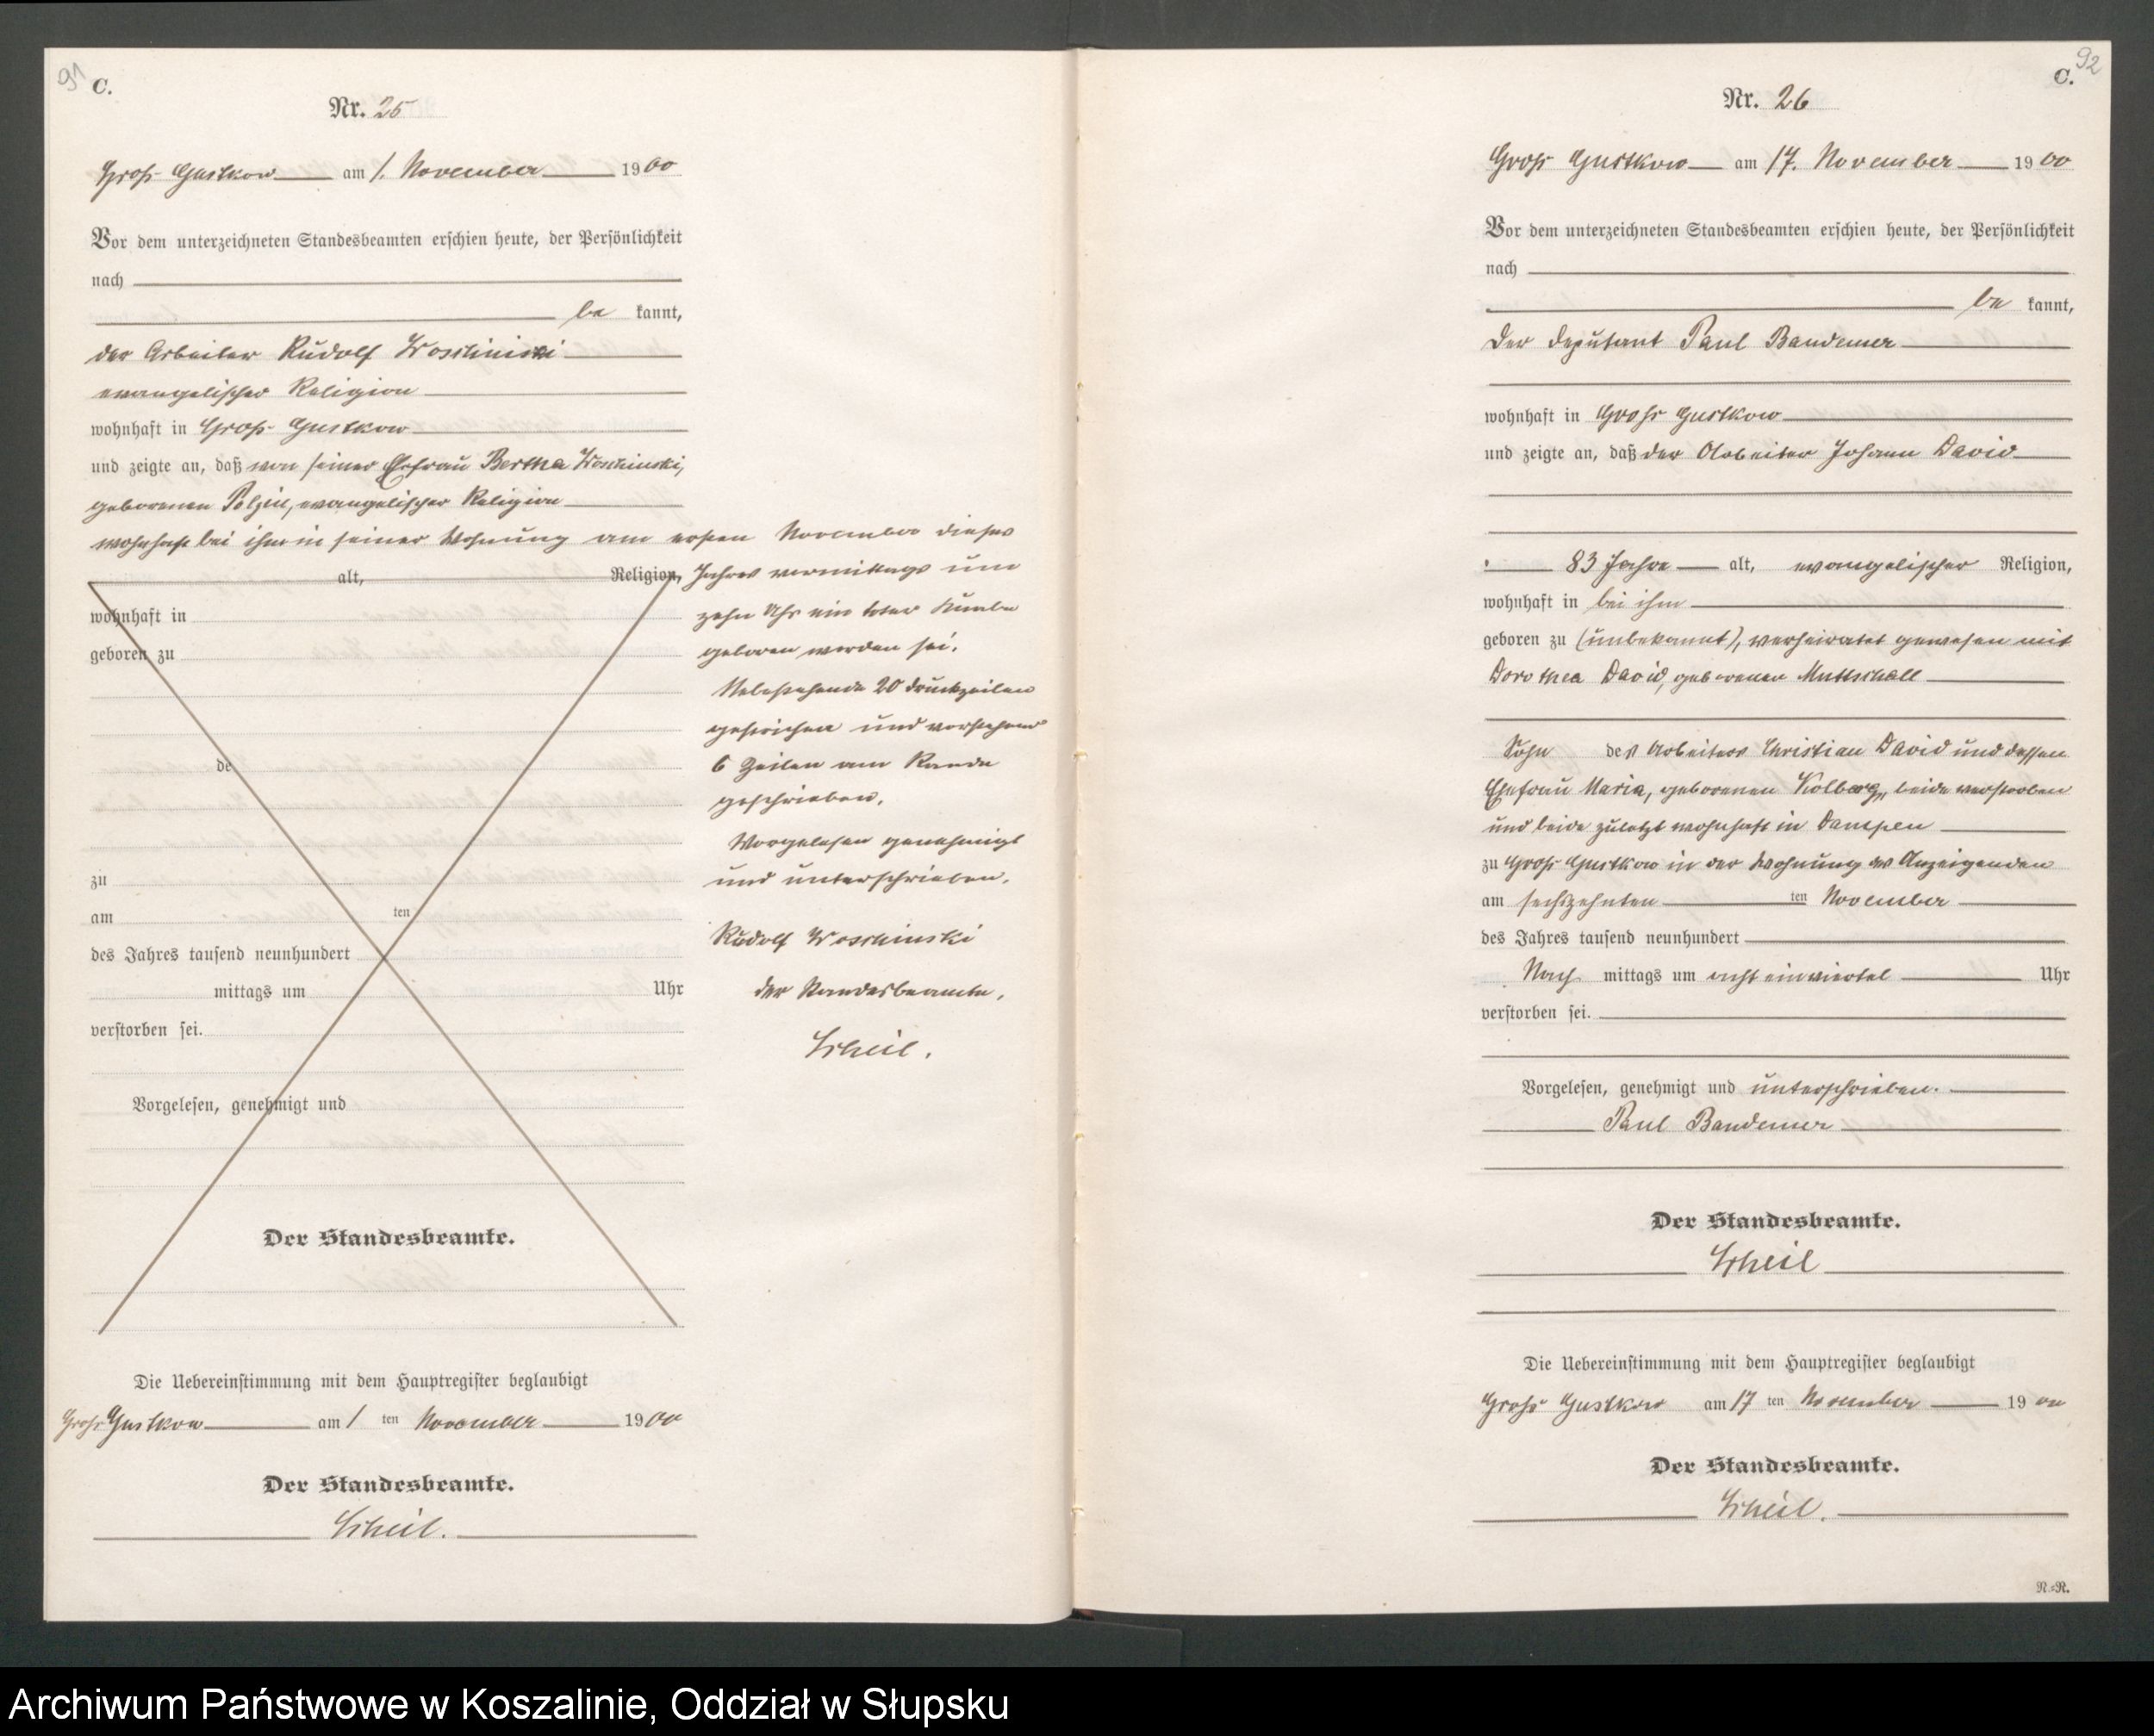 91
C.
Nr. 25
Groß Gustkow am 1. November 1900
Vor dem unterzeichneten Standesbeamten erschien heute, der Persönlichkeit
nach
be kannt,
der Arbeiter Rudolf Woschinski
evangelischer Religion
wohnhaft in Groß Gustkow
und zeigte an, daß von seiner Ehefrau Bertha Woschinski,
geborenen Polzin, evangelischer Religion
wohnhaft bei ihm in seiner Wohnung am ersten November dieses
alt, Religion, Jahres vormittags um
wohnhaft in zehn Uhr ein toter Knabe
geboren zu geboren worden sei.
Nebenstehende 20 Druckzeilen
gestrichen und vorstehend
de 6 Zeilen am Rande
geschrieben.
Vorgelesen genehmigt
zu und unterschrieben.
am ten
Rudolf Woschinski
des Jahres tausend neunhundert
mittags um Uhr der Standesbeamte.
verstorben sei.
Scheil.
Vorgelesen, genehmigt und
Der Standesbeamte.
Die Uebereinstimmung mit dem Hauptregister beglaubigt
Groß Gustkow am 1 ten November 1900
Der Standesbeamte.
Scheil.
92
C.
Nr. 26
Groß Gustkow am 17. November 1900
Vor dem unterzeichneten Standesbeamten erschien heute, der Persönlichkeit
nach
be kannt,
der Deputant Paul Bandemer
wohnhaft in Groß Gustkow
und zeigte an, daß der Arbeiter Johann David
83 Jahre alt, evangelischer Religion,
wohnhaft in bei ihm
geboren zu (unbekannt), verheiratet gewesen mit
Dorothea David, geborenen Muttschall
Sohn des Arbeiters Christian David und dessen
Ehefrau Maria, geborenen Kolberg, beide verstorben
und beide zuletzt wohnhaft in Dampen
zu Groß Gustkow in der Wohnung des Anzeigenden
am sechszehnten ten November
des Jahres tausend neunhundert
Nach mittags um acht einviertel Uhr
verstorben sei.
Vorgelesen, genehmigt und unterschrieben.
Paul Bandemer
Der Standesbeamte.
Scheil
Die Uebereinstimmung mit dem Hauptregister beglaubigt
Groß Gustkow am 17 ten November 1900
Der Standesbeamte.
Scheil.
R.=R.
Archiwum Państwowe w Koszalinie, Oddział w Słupsku